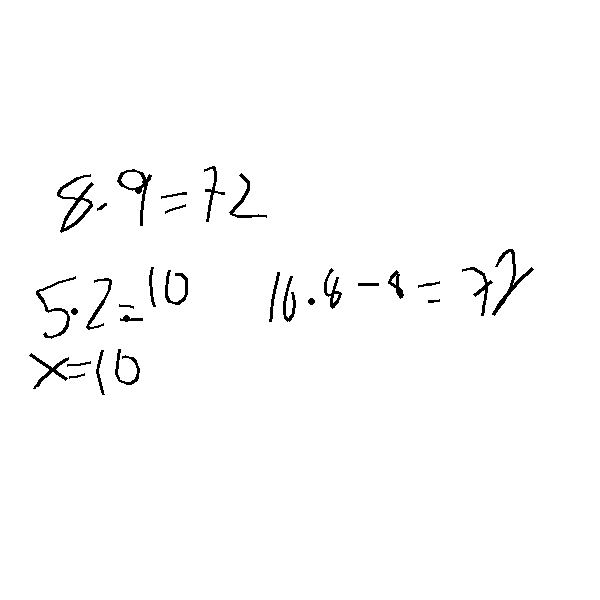 8.9=72
5.2=10 10.8-8=72
x=10